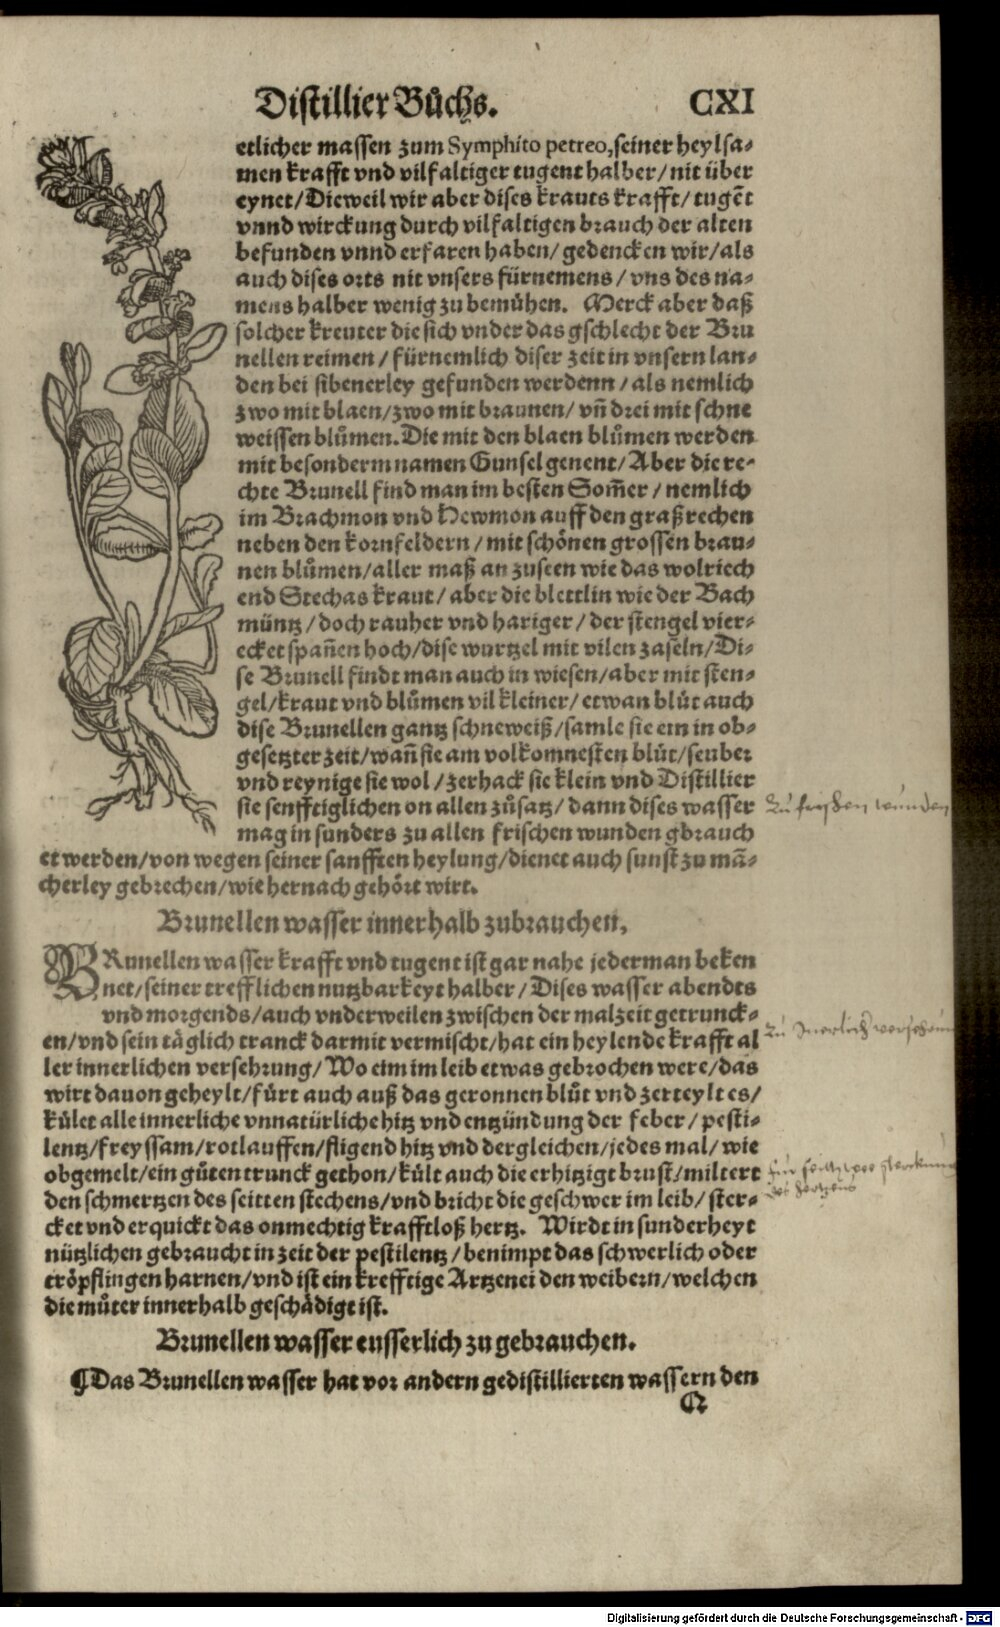 Distillier Bůchs. CXI
etlicher massen zum Symphito petreo, seiner heylsa-
men krafft vnd vilfaltiger tugent halber / nit über
eynet / Dieweil wir aber dises krauts krafft / tugēt
vnnd wirckung durch vilfaltigen brauch der alten
befunden vnnd erfaren haben / gedencken wir / als
auch dises orts nit vnsers fürnemens / vns des na-
mens halber wenig zu bemühen. Merck aber daß
solcher kreuter die sich vnder das gschlecht der Bru
nellen reimen / fürnemlich diser zeit in vnsern lan-
den bei sibenerley gefunden werdenn / als nemlich
zwo mit blaen / zwo mit braunen / vñ drei mit schne
weissen blůmen. Die mit den blaen blůmen werden
mit besonderm namen Gunsel genent / Aber die re-
chte Brunell find man im besten Som̃er / nemlich
im Brachmon vnd Hewmon auff den graßrechen
neben den kornfeldern / mit schönen grossen brau-
nen blůmen / aller maß an zuseen wie das wolriech
end Stechas kraut / aber die blettlin wie der Bach
müntz / doch rauher vnd hariger / der stengel vier-
ecket spañen hoch / dise wurtzel mit vilen zaseln / Di-
se Brunell findt man auch in wiesen / aber mit sten-
gel / kraut vnd blůmen vil kleiner / etwan blůt auch
dise Brunellen gantz schneweiß / samle sie ein in ob-
gesetzter zeit / wañ sie am volkomnesten blůt / seuber
vnd reynige sie wol / zerhack sie klein vnd Distillier
sie senfftiglichen on allen zůsatz / dann dises wasser
mag in sunders zu allen frischen wunden gbrauch
et werden / von wegen seiner sanfften heylung / dienet auch sunst zu mā-
cherley gebrechen / wie hernach gehört wirt.
Zu frischen wunden
Brunellen wasser innerhalb zubrauchen.
BRunellen wasser krafft vnd tugent ist gar nahe jederman beken
net / seiner trefflichen nutzbarkeyt halber / Dises wasser abendts
vnd morgends / auch vnderweilen zwischen der malzeit getrunck-
en / vnd sein täglich tranck darmit vermischt / hat ein heylende krafft al
ler innerlichen versehrung / Wo eim im leib etwas gebrochen were / das
wirt dauon geheylt / fürt auch auß das geronnen blůt vnd zerteylt es /
kület alle innerliche vnnatürliche hitz vnd entzündung der feber / pesti-
lentz / freyssam / rotlauffen / fligend hitz vnd dergleichen / jedes mal / wie
obgemelt / ein gůten trunck gethon / kült auch die erhitzigt brust / miltert
den schmertzen des seitten stechens / vnd bricht die geschwer im leib / ster-
cket vnd erquickt das onmechtig krafftloß hertz. Wirdt in sunderheyt
nützlichen gebraucht in zeit der pestilentz / benimpt das schwerlich oder
tröpflingen harnen / vnd ist ein krefftige Artzenei den weibern / welchen
die můter innerhalb geschädigt ist.
Brunellen wasser eusserlich zu gebrauchen.
¶ Das Brunellen wasser hat vor andern gedistillierten wassern den
Digitalisierung gefördert durch die Deutsche Forschungsgemeinschaft - DFG